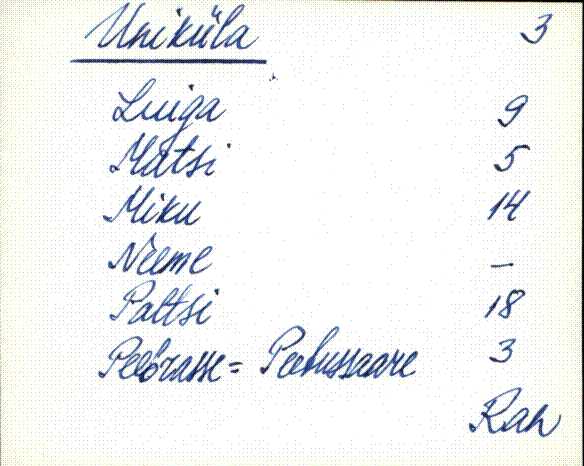 Uniküla 3
Luiga 9
Matsi 5
Miku 14
Neeme —
Paltsi 18
= Peebussaare 3
Rah